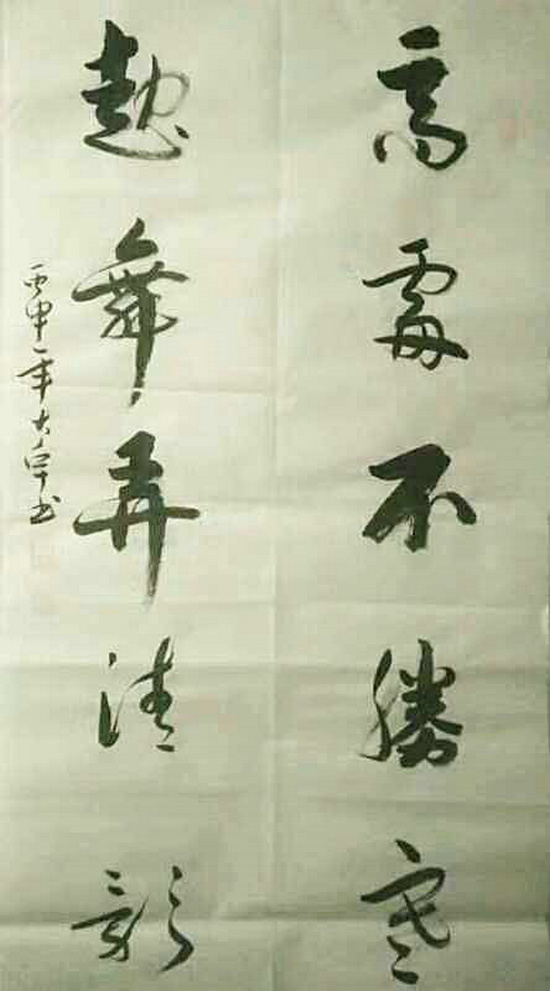 高處不勝寒
起舞弄清影
丙申年大書